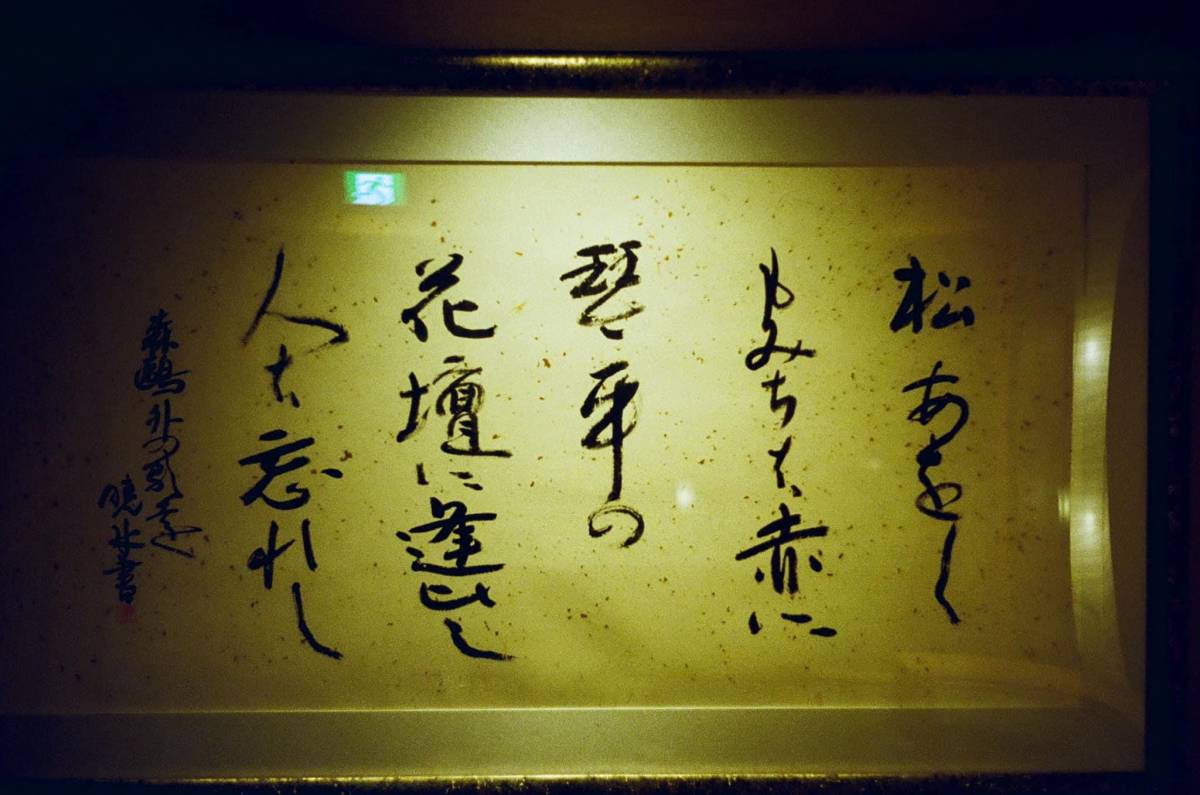 松あをし
もみちは赤に
琴平の
花壇に逢ひし
人は忘れし
森鷗外の歌を